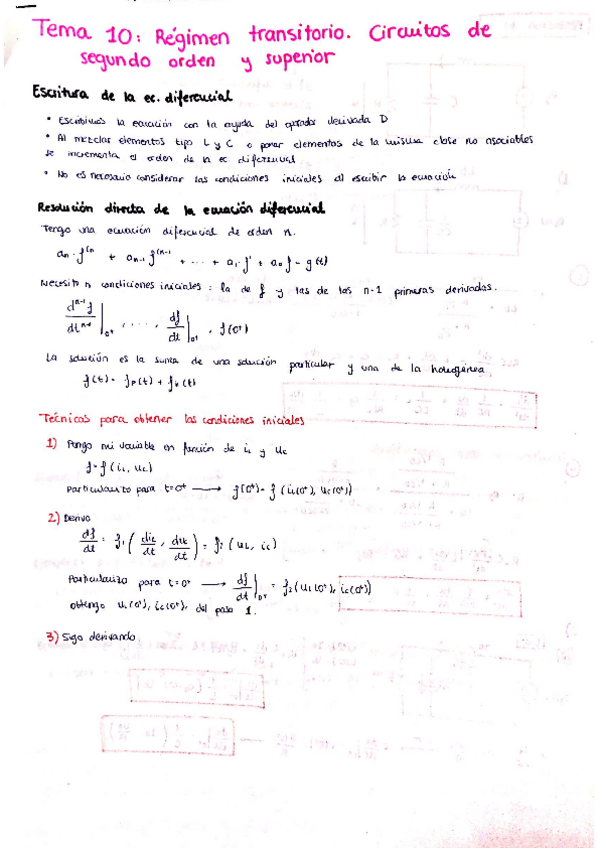 Tema 10: Régimen transitorio. Circuitos de
segundo orden y superior
Escritura de la ec. diferencial
• Escribimos la ecuación con la ayuda del operador derivada D
• Al mezclar elementos tipo L y C o poner elementos de la misma clase no asociables
se incrementa el orden de la ec diferencial
• No es necesario considerar las condiciones iniciales al escribir la ecuación
Resolución directa de la ecuación diferencial
Tengo una ecuación diferencial de orden n.
an · f^(n + an-1 f^(n-1 + ... + a1 · f' + a0 f = g(t)
Necesito n condiciones iniciales: la de f y las de las n-1 primeras derivadas.
d^(n-1) f / dt^(n-1) |0+ , ..... , df/dt |0+ , f(0+)
La solución es la suma de una solución particular y una de la homogénea
f(t) = fp(t) + fh(t)
Técnicas para obtener las condiciones iniciales
1) Pongo mi variable en función de iL y uc
f = f(iL, uc)
Particularizo para t=0+ → f(0+) = f(iL(0+), uc(0+))
2) Derivo
df/dt = f1 (diL/dt, duc/dt) = f2 (uL, ic)
Particularizo para t=0+ → df/dt |0+ = f2(uL(0+), ic(0+))
obtengo uL(0+), ic(0+), del paso 1.
3) Sigo derivando